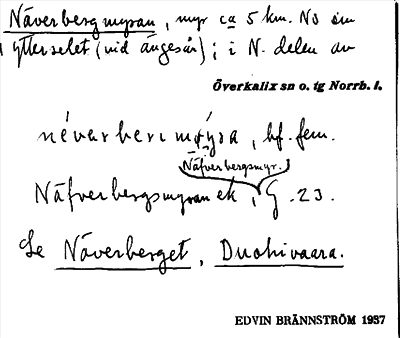 Näverbergmyran, myr ca 5 km. NO om
ytterselet (vid ängesån); i N. delen av
Överkalix sn o. tg Norrb. l.
néverberimøyra, bf. fem.
Näfverbergsmyr.
Näfverbergsmyran ek, G. 23.
Se Näverberget, Duohivaara.
EDVIN BRÄNNSTRÖM 1937